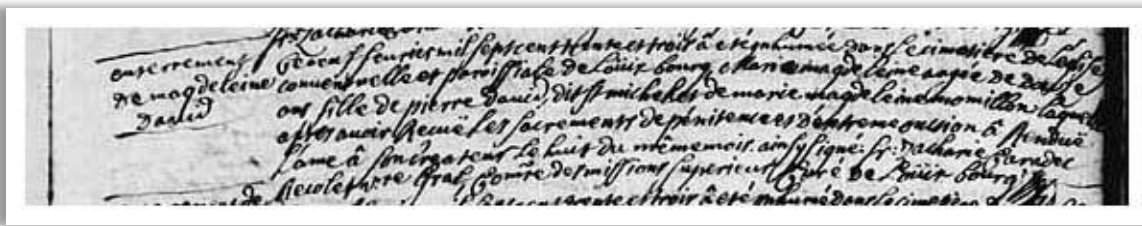 fr. Zacharie
enterrement
de magdeleine
David
Le neuf feurier mil sept cent trente et trois à été inhumée dans le cimetiere de leglise
conventuelle et paroissiale de Loüis bourg Marie magdeleine agée de douse
ans fille de pierre David dit St michel et de marie magdeleine momillon laquel
apres auoir Recuë les sacrements de pénitence et d'extreme onction à Renduë
l'ame à son createur Le huit du mëme mois. ainsy signé. fr. Zacharie Caradec
Recolet comre des missions superieur Curé de Loüis bourg
sept cent trente et trois à été inhumé dans le cimetiere